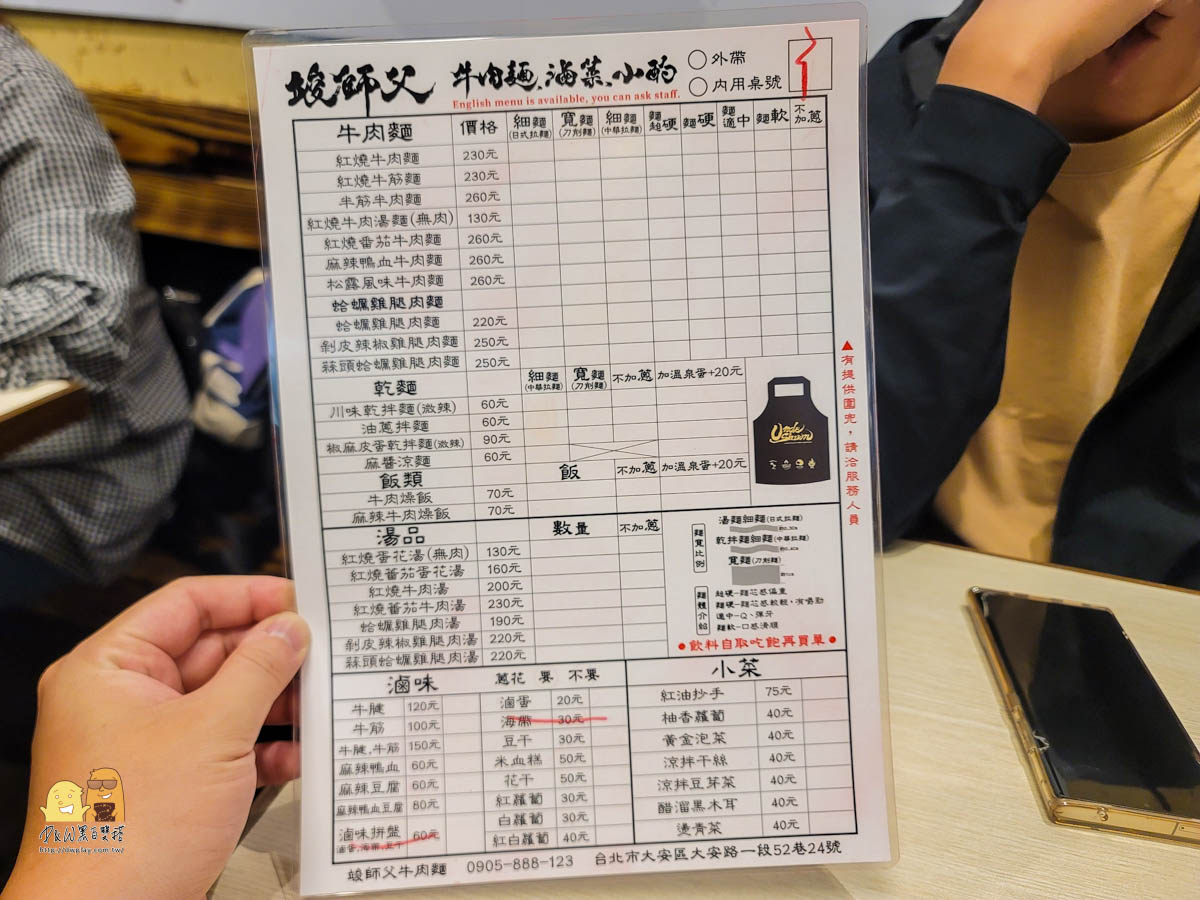 竣師父 牛肉麵、滷菜、小酌 外帶
內用桌號 1
English menu is available, you can ask staff.
牛肉麵 價格 細麵(日式拉麵) 寬麵(刀削麵) 細麵(中華拉麵) 麵超硬 麵硬 麵適中 麵軟 不加蔥
紅燒牛肉麵 230元
紅燒牛筋麵 230元
半筋半肉麵 260元
紅燒牛肉湯麵(無肉) 130元
紅燒番茄牛肉麵 260元
麻辣鴨血牛肉麵 260元
松露風味牛肉麵 260元
蛤蠣雞腿肉麵
蛤蠣雞腿肉麵 220元
剝皮辣椒雞腿肉麵 250元
蒜頭蛤蠣雞腿肉麵 250元
乾麵 細麵(中華拉麵) 寬麵(刀削麵) 不加蔥 加溫泉蛋+20元
川味乾拌麵(微辣) 60元
油蔥拌麵 60元
椒麻皮蛋乾拌麵(微辣) 90元
麻醬涼麵 60元
飯類 飯 不加蔥 加溫泉蛋+20元
牛肉燥飯 70元
麻辣牛肉燥飯 70元
Uncle Shum
▲有提供圍兜，請洽服務人員
湯品 數量 不加蔥
紅燒蛋花湯(無肉) 130元
紅燒番茄蛋花湯 160元
紅燒牛肉湯 200元
紅燒番茄牛肉湯 230元
蛤蠣雞腿肉湯 190元
剝皮辣椒雞腿肉湯 220元
蒜頭蛤蠣雞腿肉湯 220元
麵寬比例
湯麵細麵(日式拉麵)
乾拌麵細麵(中華拉麵)
寬麵(刀削麵)
麵體介紹
超硬-麵芯感偏重
麵硬-麵芯感較輕、有嚼勁
適中-Q、彈牙
麵軟-口感滑順
●飲料自取吃飽再買單●
滷味 蔥花 要 不要
牛腱 120元
牛筋 100元
牛腱,牛筋 150元
麻辣鴨血 60元
麻辣豆腐 60元
麻辣鴨血豆腐 80元
滷味拼盤 60元
滷蛋,海帶,豆干
滷蛋 20元
海帶 30元
豆干 30元
米血糕 50元
花干 50元
紅蘿蔔 30元
白蘿蔔 30元
紅白蘿蔔 40元
小菜
紅油抄手 75元
柚香蘿蔔 40元
黃金泡菜 40元
涼拌干絲 40元
涼拌豆芽菜 40元
醋溜黑木耳 40元
燙青菜 40元
竣師父牛肉麵 0905-888-123 台北市大安區大安路一段52巷24號
DW黑白雙搭
http://dwplay.com.tw/